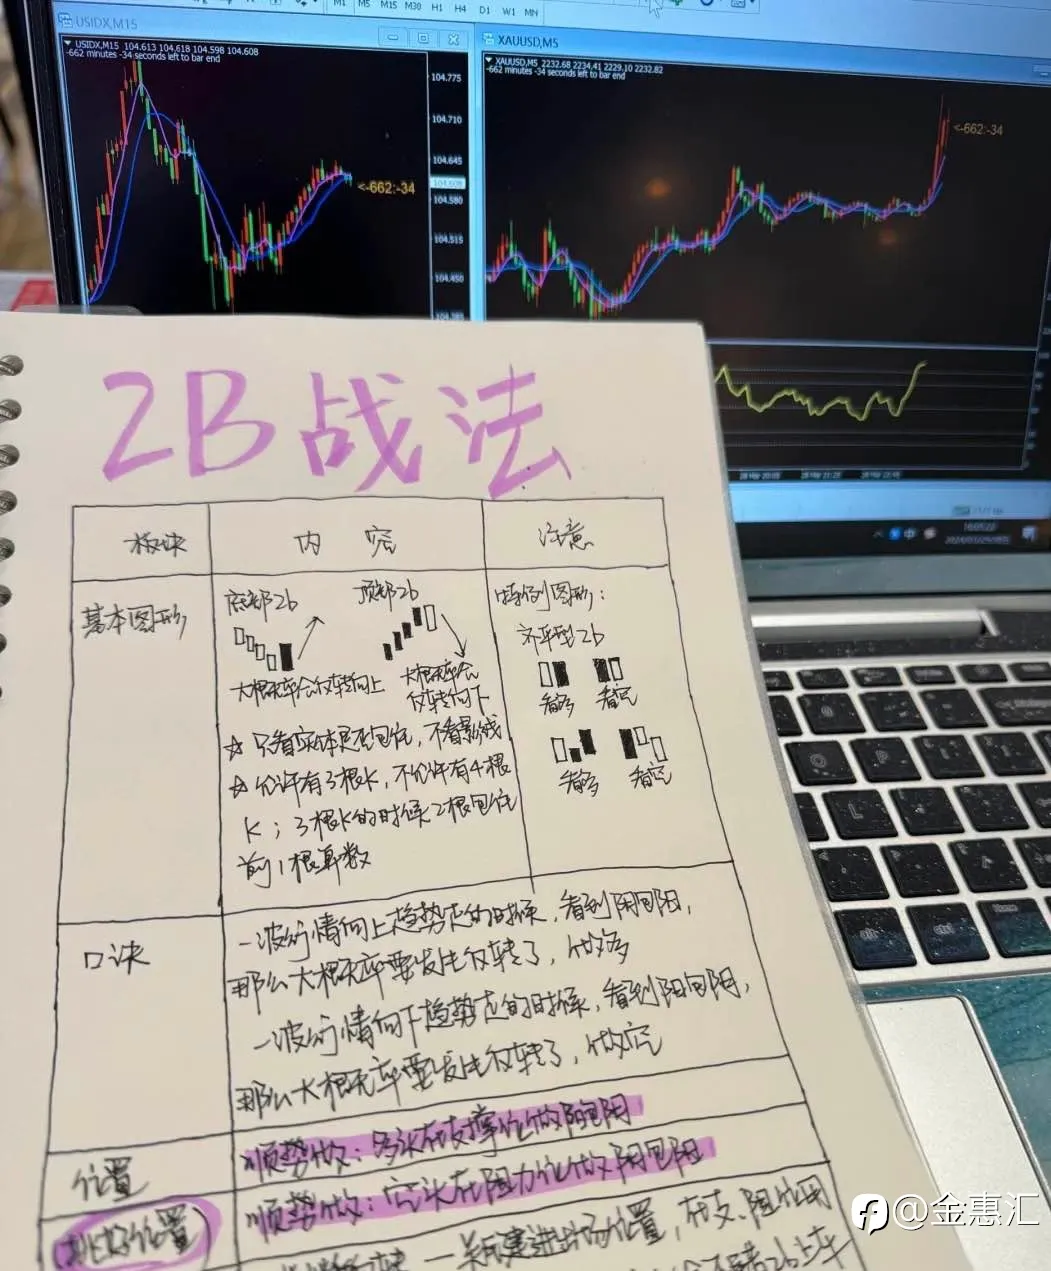 M1 M5 M15 M30 H1 H4 D1 W1 MN
USIDX,M15
USIDX,M15 104.613 104.618 104.598 104.608
-662 minutes -34 seconds left to bar end
104.775
104.710
104.645
104.608
104.580
104.515
104.450
104.385
<-662:-34
XAUUSD,M5
XAUUSD,M5 2232.68 2234.41 2229.10 2232.82
-662 minutes -34 seconds left to bar end
<-662:-34
2B战法
板块 内容 注意
基本图形
底部2b 顶部2b
大概率会反转向上
大概率会
反转向下
☆ 只看实体是否包住,不看影线
☆ 允许有3根K,不允许有4根
K;3根K的时候2根包住
前1根算数
特例图形:
齐平型2b
看多 看空
看多 看空
口诀
一波行情向上趋势走的时候,看到阴包阳,
那么大概率要发生反转了,做多
一波行情向下趋势走的时候,看到阳包阴,
那么大概率要发生反转了,做空
位置
顺势做:多头在支撑位做阳包阴
顺势做:空头在阻力位做阴包阳
找好位置
一关键进出场位置,在支、阻位用
@金惠汇